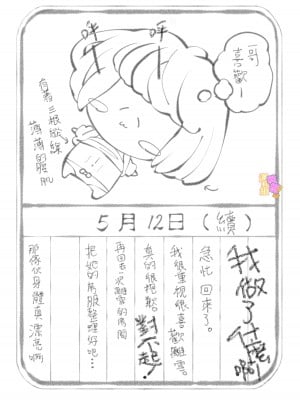 哥
喜歡~
呼~
呼~
有著三根線
薄薄的腹肌
5月12日(續)
我做了什麼啊
急忙回來了。
我很重視很喜歡雛雪。
真的很抱歉。對不起！
再回去一次雛雪的房間
把她的衣服整理好吧…
那傢伙身體真漂亮啊